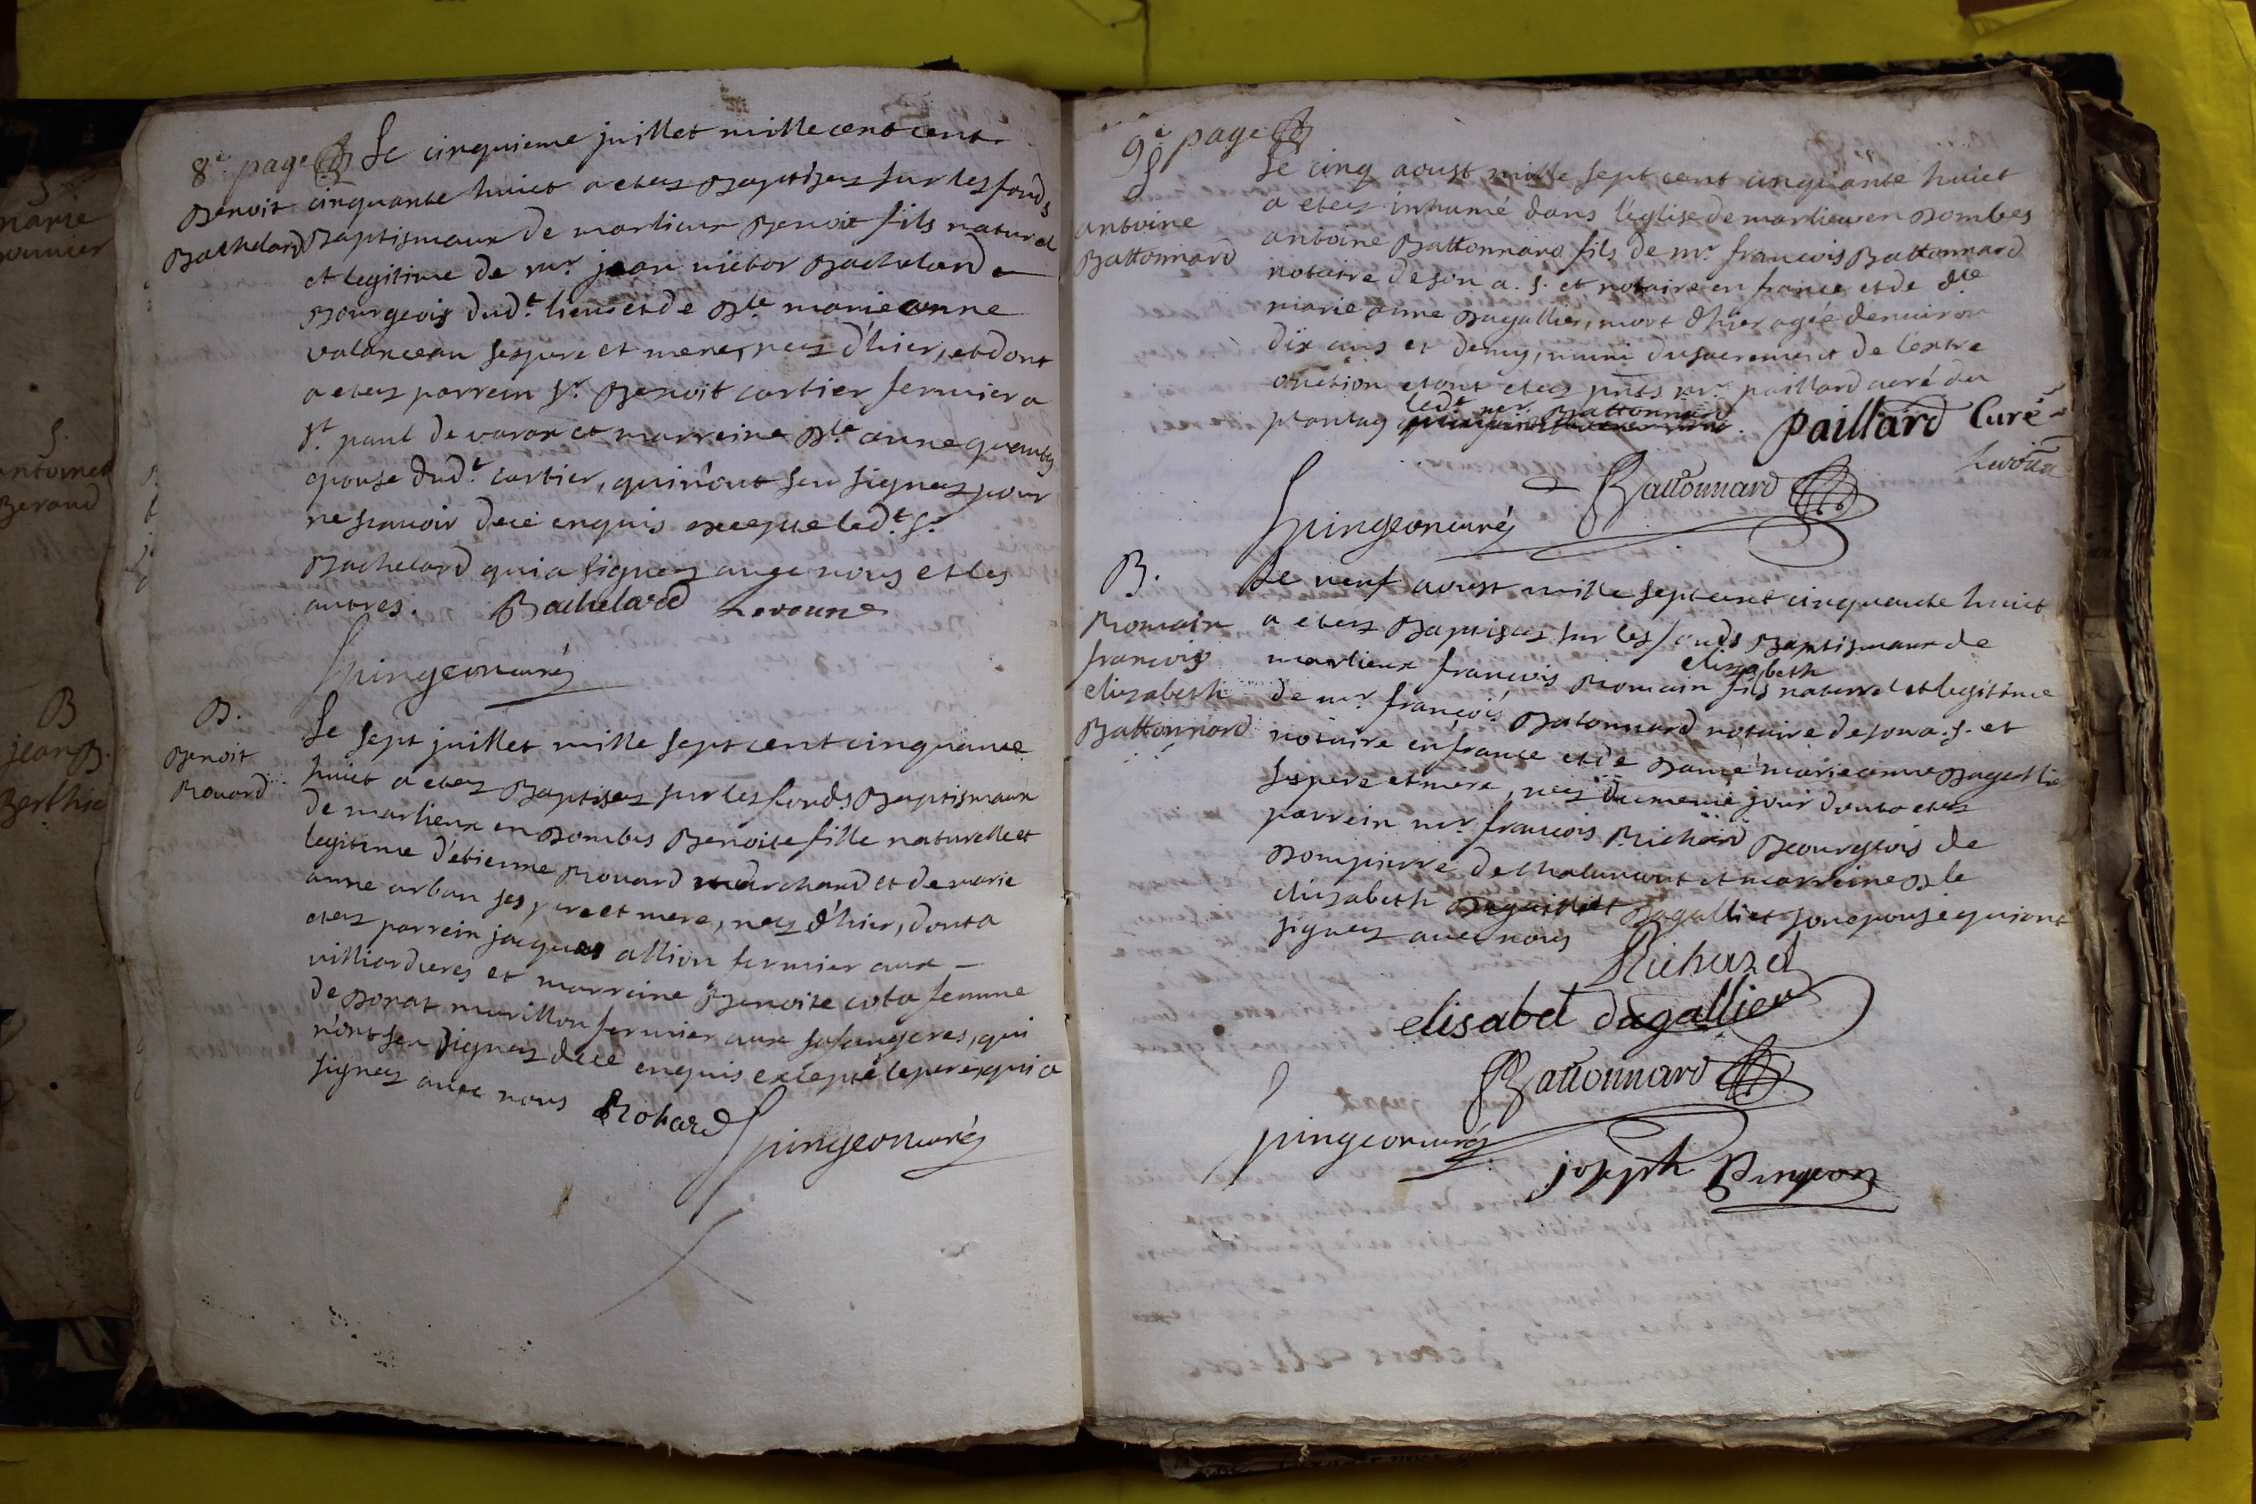 8e page
Le cinquieme juillet mille cent cent
Benoit
Bachelard
cinquante huict a etez Baptisez sur les fonds
Baptismaux de marlieux Benoit fils naturel
et legitime de mr. jean victor Bachelard
Bourgeois dudt. lieu et de Dle. marie anne
valanceau ses pere et mere, nez d'hier, et dont
a etez parrein Sr. Benoit cartier fermier a
St. paul de varax et marreine Dle. anne
epouse dudt. cartier, qui n'ont sçu signez pour
ne sçavoir de ce enquis excepté ledt. Sr.
Bachelard qui a signez avec nous et les
autres. Bachelard Levoune
pingeon curé
B.
Benoit
Rouard
Le sept juillet mille sept cent cinquante
huict a etez Baptisez sur les fonds Baptismaux
de marlieux en Dombes Benoite fille naturelle et
legitime d'etienne Rouard marchand et de marie
anne urban ses pere et mere, nez d'hier, dont a
etez parrein jacques allion fermier aux
villiardieres et marreine Benoite cota femme
de Donat murillon fermier aux, qui
n'ont sçu signez de ce enquis excepté le pere, qui a
signez avec nous Rohard
pingeon curé
9e page
S
antoine
Battonnard
Le cinq aoust mille sept cent cinquante huict
a etez inhumé dans l'eglise de marlieux en Dombes
antoine Battonnard fils de mr. francois Battonnard
notaire de son a. s. et notaire en france et de dlle
marie anne Dagallier, mort d'hier agée d'environ
dix ans et demy, muni du sacrement de l'extre
onction et ont etez pnts mr. paillard curé du
plantay ledt mr. Battonnard. paillard Curé
Battonnard
pingeon curé
B.
Romain
francois
elizabeth
Battonnard
Le neuf aoust mille sept cent cinquante huict
a etez Baptisez sur les fonds Baptismaux de
marlieux francois Romain elizabeth fils naturel et legitime
de mr. francois Batonnard notaire de son a. s. et
notaire en france et de Dame marie anne Dagallie
ses pere et mere, nez du meme jour dont a etez
parrein mr. francois Richard Bourgeois de
Dompierre de chalamont et marreine Dle
elizabeth Dagallier son epouse qui ont
signez avec nous Richard
elisabet dagallier
Battonnard
pingeon curé
joseph Pingeon